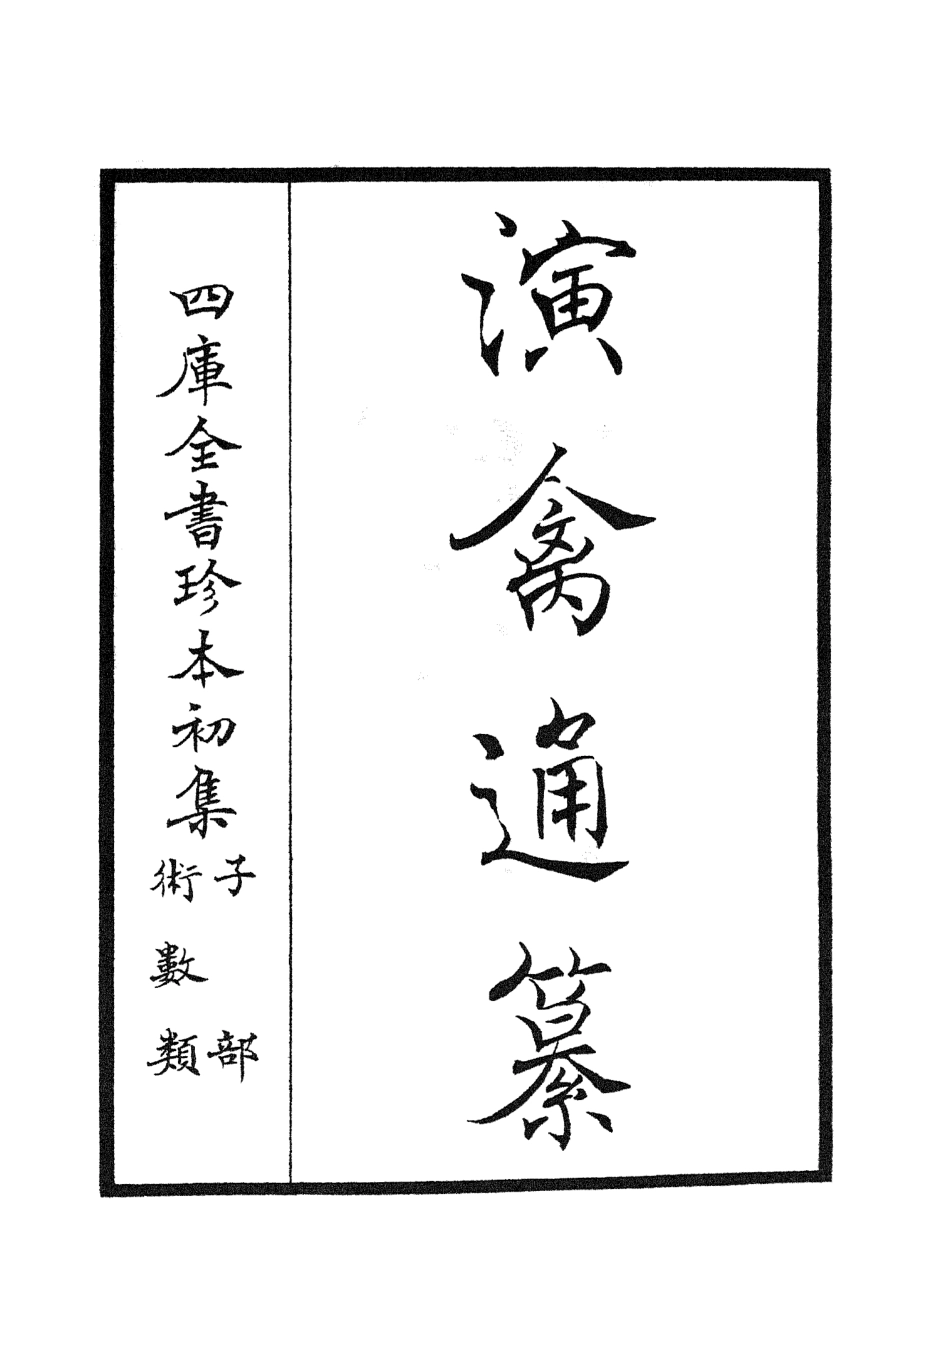 演禽通纂
四庫全書珍本初集
子部
術數類